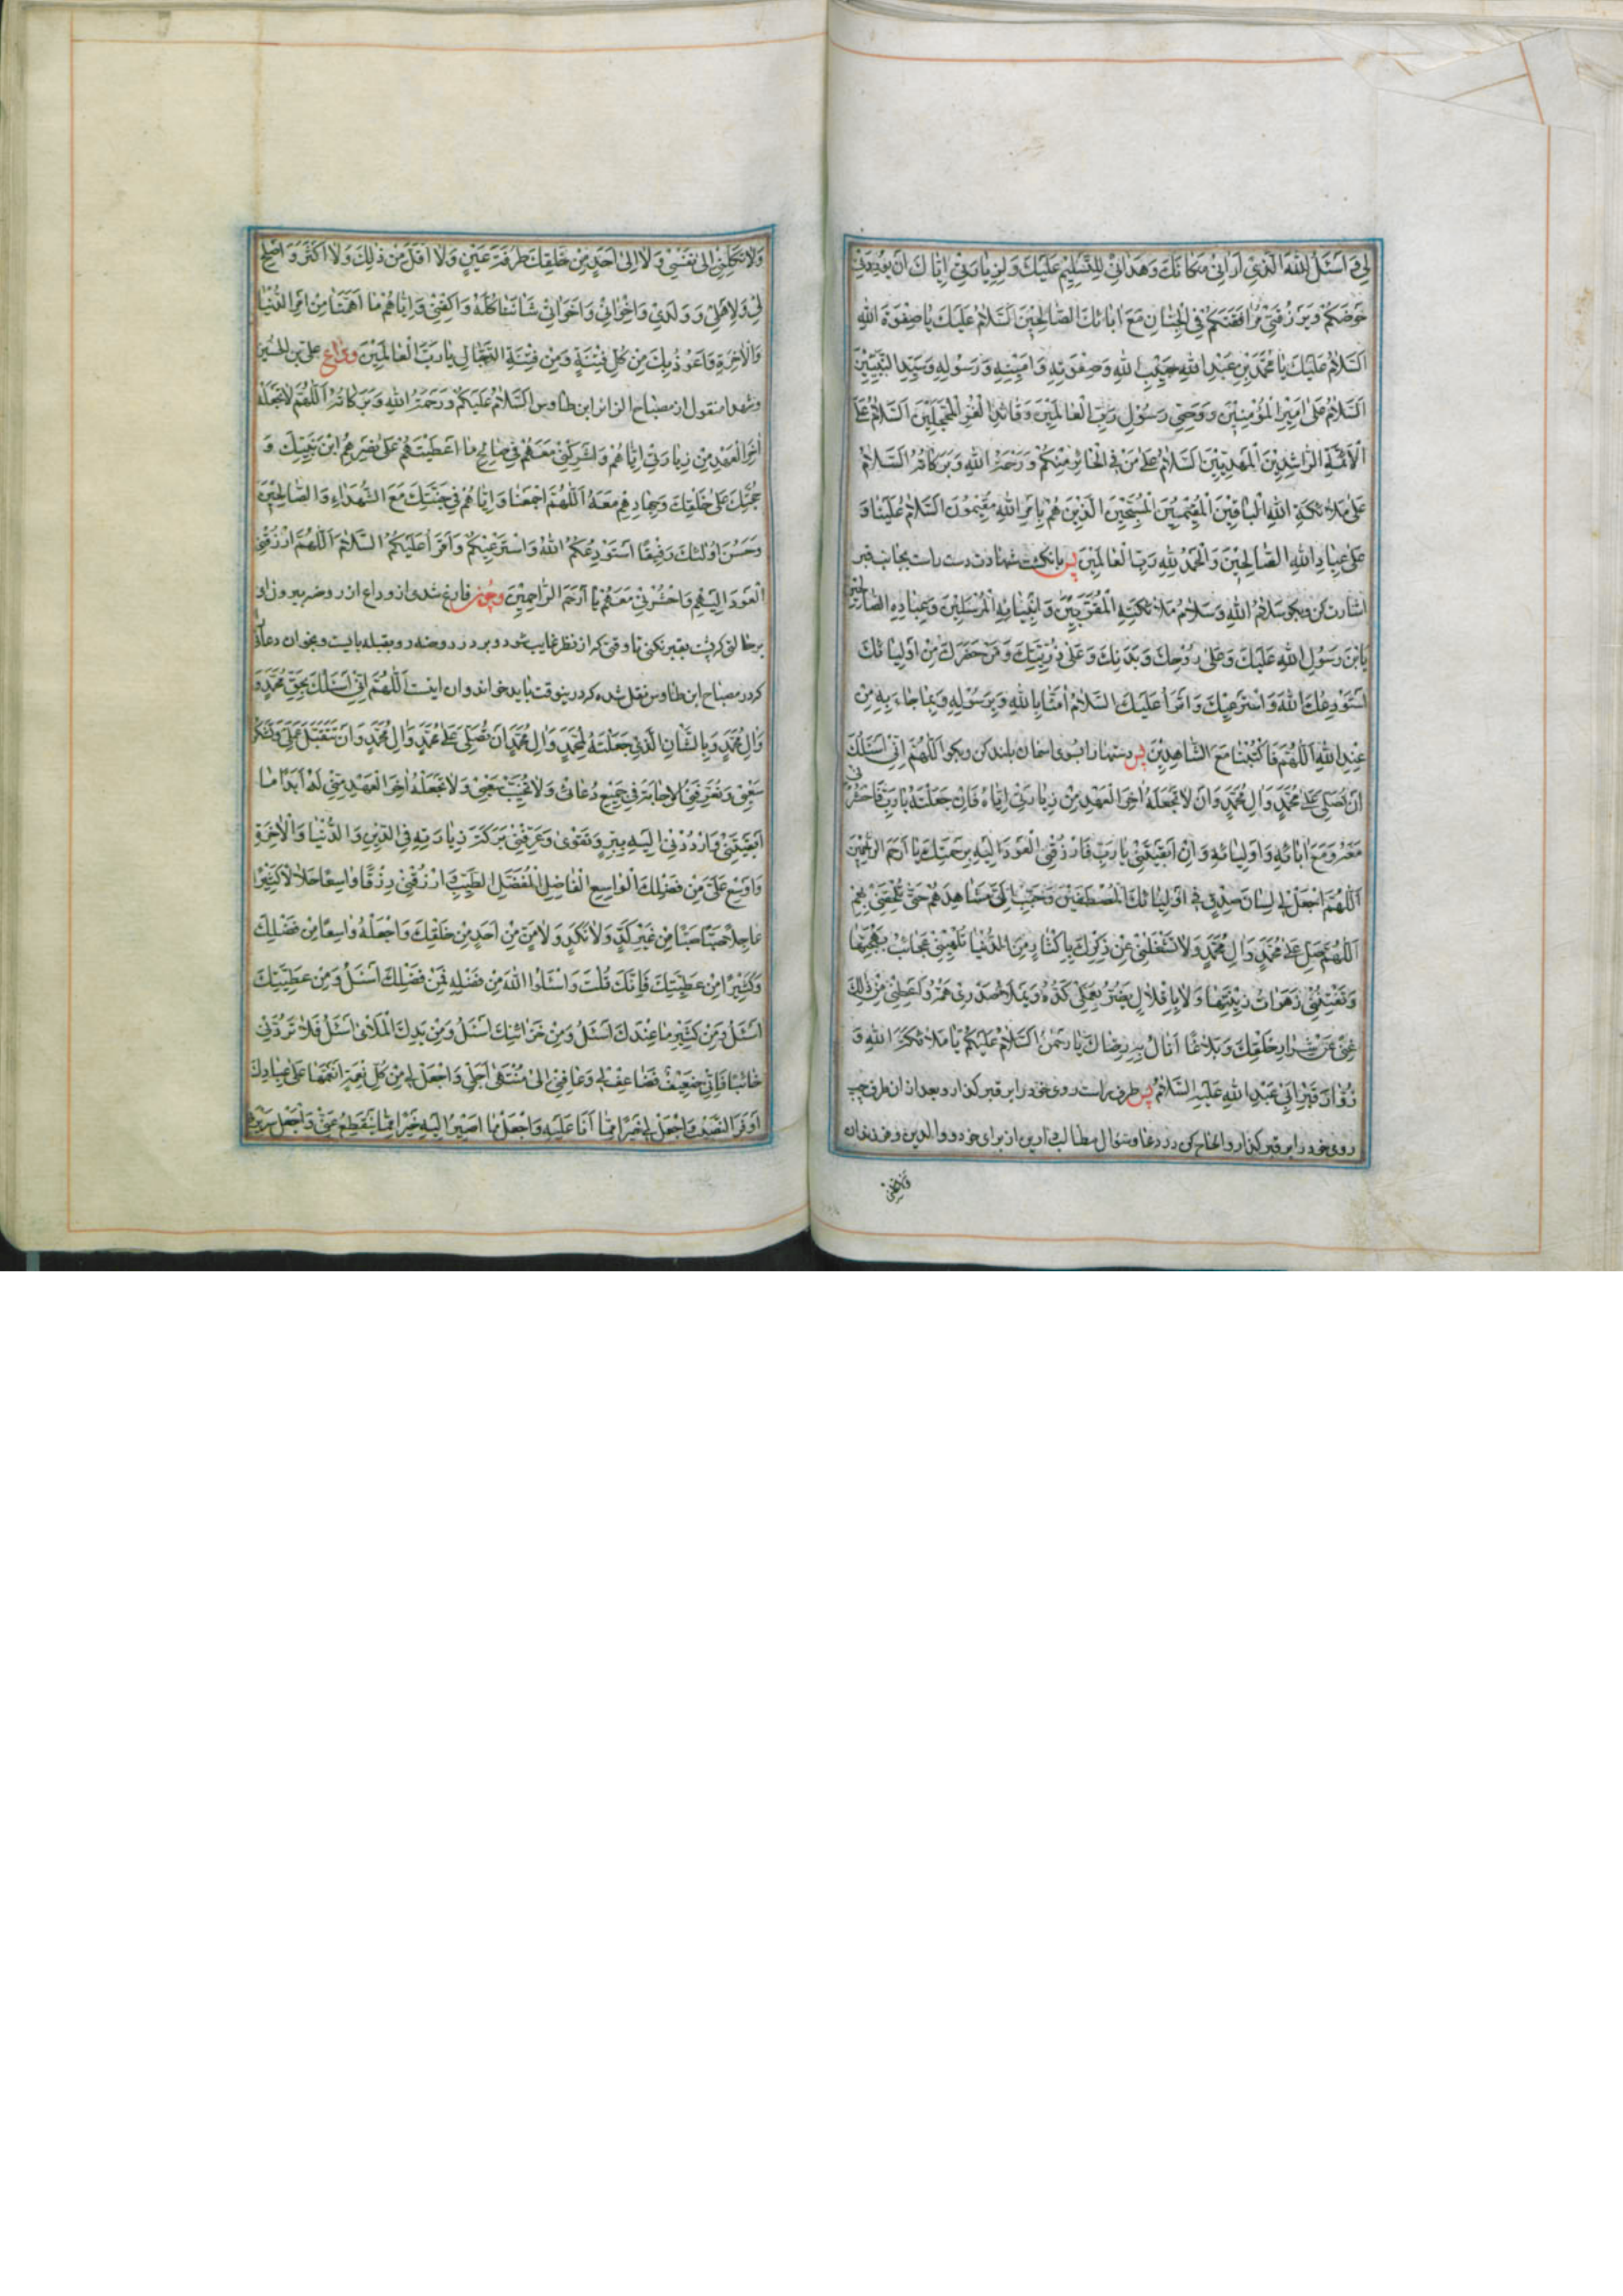 لي و اَسْئَلُ اللهَ الَّذي اَراني مَكانَكَ وَهَداني لِلتَّسْليمِ عَلَيْكَ وَلِزِيارَتي اِيّاكَ اَنْ يُورِدَني
حَوْضَكُمْ وَيَرْزُقَني مُرافَقَتَكُمْ فِي الْجِنانِ مَعَ اٰبائِكَ الصّالِحينَ اَلسَّلامُ عَلَيْكَ يا صِفْوَةَ اللهِ
اَلسَّلامُ عَلَيْكَ يا مُحَمَّدَ بْنِ عَبْدِ اللهِ حَبيبِ اللهِ وَصِفْوَتِهِ وَاَمينِهِ وَرَسُولِهِ وَسَيِّدِ النَّبِيّينَ
اَلسَّلامُ عَلٰى اَميرِ الْمُؤْمِنينَ وَوَصِيِّ رَسُولِ رَبِّ الْعالَمينَ وَقائِدِ الْغُرِّ الْمُحَجَّلينَ اَلسَّلامُ عَلَى
الْاَئِمَّةِ الرّاشِدينَ الْمَهْدِيّينَ اَلسَّلامُ عَلٰى مَنْ فِي الْحائِرِ مِنْكُمْ وَرَحْمَةُ اللهِ وَبَرَكاتُهُ اَلسَّلامُ
عَلٰى مَلائِكَةِ اللهِ الْباقينَ الْمُقيمينَ الْمُسَبِّحينَ الَّذينَ هُمْ بِاَمْرِ اللهِ مُقيمُونَ اَلسَّلامُ عَلَيْنا وَ
عَلٰى عِبادِ اللهِ الصّالِحينَ وَالْحَمْدُ لِلّهِ رَبِّ الْعالَمينَ پس بانگشت شهادت دست راست بجانب قبر
اشارت كن و بگو سَلامُ اللهِ وَسَلامُ مَلائِكَتِهِ الْمُقَرَّبينَ وَاَنْبِيائِهِ الْمُرْسَلينَ وَعِبادِهِ الصّالِحينَ
يَا بْنَ رَسُولِ اللهِ عَلَيْكَ وَعَلٰى رُوحِكَ وَبَدَنِكَ وَعَلٰى ذُرِّيَّتِكَ وَمَنْ حَضَرَكَ مِنْ اَوْلِيائِكَ
اَسْتَوْدِعُكَ اللهَ وَاَسْتَرْعيكَ وَاَقْرَأُ عَلَيْكَ السَّلامُ اٰمَنّا بِاللهِ وَبِرَسُولِهِ وَبِما جاءَ بِهِ مِنْ
عِنْدِ اللهِ اَللّهُمَّ فَاكْتُبْنا مَعَ الشّاهِدينَ پس دستها را بسوى اسمان بلند كن و بگو اَللّهُمَّ اِنّي اَسْئَلُكَ
اَنْ تُصَلِّيَ عَلٰى مُحَمَّدٍ وَاٰلِ مُحَمَّدٍ وَاَنْ لا تَجْعَلَهُ اٰخِرَ الْعَهْدِ مِنْ زِيارَتي اِيّاهُ فَاِنْ جَعَلْتَهُ يا رَبِّ فَاحْشُرْني
مَعَهُ وَمَعَ اٰبائِهِ وَاَوْلِيائِهِ وَاِنْ اَبْقَيْتَني يا رَبِّ فَارْزُقْنِي الْعَوْدَ اِلَيْهِ بِرَحْمَتِكَ يا اَرْحَمَ الرّاحِمينَ
اَللّهُمَّ اجْعَلْ لي لِسانَ صِدْقٍ في اَوْلِيائِكَ الْمُصْطَفَيْنَ وَحَبِّبْ اِلَيَّ مَشاهِدَهُمْ حَتّٰى تُلْحِقَني بِهِمْ
اَللّهُمَّ صَلِّ عَلٰى مُحَمَّدٍ وَاٰلِ مُحَمَّدٍ وَلا تَشْغَلْني عَنْ ذِكْرِكَ بِاِكْثارٍ مِنَ الدُّنْيا تُلْهيني عَجائِبُ بَهْجَتِها
وَتَفْتِنُني زَهَراتُ زينَتِها وَلا بِاِقْلالٍ يَضُرُّ بِعَمَلي كَدُّهُ وَيَمْلَأُ صَدْري هَمُّهُ وَاَعْطِني مِنْ ذٰلِكَ
غِنًى عَنْ شِرارِ خَلْقِكَ وَبَلاغًا اَنالُ بِهِ رِضاكَ يا رَحْمٰنُ اَلسَّلامُ عَلَيْكُمْ يا مَلائِكَةَ اللهِ وَ
زُوّارَ قَبْرِ اَبي عَبْدِ اللهِ عَلَيْهِ السَّلامُ پس طرف راست روى خود را بر قبر گذار و بعد از ان طرف چپ
روى خود را بر قبر گذار و الحاح كن در دعا و سؤال مطالب دارين از براى خود و والدين و فرزندان
وَلا تَكِلْني اِلٰى نَفْسي وَلا اِلٰى اَحَدٍ مِنْ خَلْقِكَ طَرْفَةَ عَيْنٍ وَلا اَقَلَّ مِنْ ذٰلِكَ وَلا اَكْثَرَ وَ اَصْلِحْ
لي وَلِاَهْلي وَوَلَدي وَاِخْواني وَاَخَواتي شَأْنَنا كُلَّهُ وَاكْفِني وَاِيّاهُمْ ما اَهَمَّنا مِنْ اَمْرِ الدُّنْيا
وَالْاٰخِرَةِ وَاَعُوذُ بِكَ مِنْ كُلِّ فِتْنَةٍ وَمِنْ فِتْنَةِ الدَّجّالِ يا رَبَّ الْعالَمينَ وداع على بن الحسين
وشهدا منقول از مصباح الزائر ابن طاوس اَلسَّلامُ عَلَيْكُمْ وَرَحْمَةُ اللهِ وَبَرَكاتُهُ اَللّهُمَّ لا تَجْعَلْهُ
اٰخِرَ الْعَهْدِ مِنْ زِيارَتي اِيّاهُمْ وَاَشْرِكْني مَعَهُمْ في صالِحِ ما اَعْطَيْتَهُمْ عَلٰى نَصْرِهِمُ ابْنَ نَبِيِّكَ وَ
حُجَّتَكَ عَلٰى خَلْقِكَ وَجِهادِهِمْ مَعَهُ اَللّهُمَّ اجْمَعْنا وَاِيّاهُمْ في جَنَّتِكَ مَعَ الشُّهَداءِ وَالصّالِحينَ
وَحَسُنَ اُولٰئِكَ رَفيقًا اَسْتَوْدِعُكُمُ اللهَ وَاَسْتَرْعيكُمْ وَاَقْرَأُ عَلَيْكُمُ السَّلامَ اَللّهُمَّ ارْزُقْنِي
الْعَوْدَ اِلَيْهِمْ وَاحْشُرْني مَعَهُمْ يا اَرْحَمَ الرّاحِمينَ و چون فارغ شدى از وداع از روضه بيرون او
بر حالتى كه پشت بقبر نكنى تا وقتى كه از نظر غايب شود و بر در روضه رو بقبله بايست و بخوان دعائى
كه در مصباح ابن طاوس نقل شده كه در ينوقت بايد خواند و ان اينست اَللّهُمَّ اِنّي اَسْئَلُكَ بِحَقِّ مُحَمَّدٍ وَ
وَاٰلِ مُحَمَّدٍ وَبِالشَّأْنِ الَّذي جَعَلْتَهُ لِمُحَمَّدٍ وَاٰلِ مُحَمَّدٍ اَنْ تُصَلِّيَ عَلٰى مُحَمَّدٍ وَاٰلِ مُحَمَّدٍ وَاَنْ تَتَقَبَّلَ عَمَلي وَتَشْكُرَ
سَعْيي وَتُعَرِّفَنِي الْاِجابَةَ في جَميعِ دُعائي وَلا تُخَيِّبْ سَعْيي وَلا تَجْعَلْهُ اٰخِرَ الْعَهْدِ مِنّي لَهُ اَبَدًا ما
اَبْقَيْتَني وَارْدُدْني اِلَيْهِ بِبِرٍّ وَتَقْوٰى وَعَرِّفْني بَرَكَةَ زِيارَتِهِ فِي الدّينِ وَالدُّنْيا وَالْاٰخِرَةِ
وَاَوْسِعْ عَلَيَّ مِنْ فَضْلِكَ الْواسِعِ الْفاضِلِ الْمُفْضِلِ الطَّيِّبِ وَارْزُقْني رِزْقًا واسِعًا حَلالًا كَثيرًا
عاجِلًا صَبًّا صَبًّا مِنْ غَيْرِ كَدٍّ وَلا نَكَدٍ وَلا مَنٍّ مِنْ اَحَدٍ مِنْ خَلْقِكَ وَاجْعَلْهُ واسِعًا مِنْ فَضْلِكَ
وَكَثيرًا مِنْ عَطِيَّتِكَ فَاِنَّكَ قُلْتَ وَاسْئَلُوا اللهَ مِنْ فَضْلِهِ فَمِنْ فَضْلِكَ اَسْئَلُ وَمِنْ عَطِيَّتِكَ
اَسْئَلُ وَمِنْ كَثيرِ ما عِنْدَكَ اَسْئَلُ وَمِنْ خَزائِنِكَ اَسْئَلُ وَمِنْ يَدِكَ الْمَلْأٰى اَسْئَلُ فَلا تَرُدَّني
خائِبًا فَاِنّي ضَعيفٌ فَضاعِفْ لي وَعافِني اِلٰى مُنْتَهٰى اَجَلي وَاجْعَلْ لي مِنْ كُلِّ نِعْمَةٍ اَنْعَمْتَها عَلٰى عِبادِكَ
اَوْفَرَ النَّصيبِ وَاجْعَلْ لي خَيْرًا مِمّا اَنَا عَلَيْهِ وَاجْعَلْ ما اَصيرُ اِلَيْهِ خَيْرًا مِمّا يَنْقَطِعُ عَنّي وَاجْعَلْ سَريرَتي